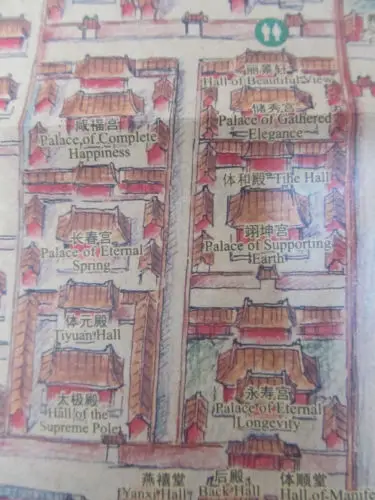 咸福宫
Palace of Complete
Happiness
长春宫
Palace of Eternal
Spring
体元殿
Tiyuan Hall
太极殿
Hall of the
Supreme Pole
丽景轩
Hall of Beautiful View
储秀宫
Palace of Gathered
Elegance
体和殿 Tihe Hall
翊坤宫
Palace of Supporting
Earth
永寿宫
Palace of Eternal
Longevity
燕禧堂
Yanxi Hall
后殿
Back Hall
体顺堂
Hall of